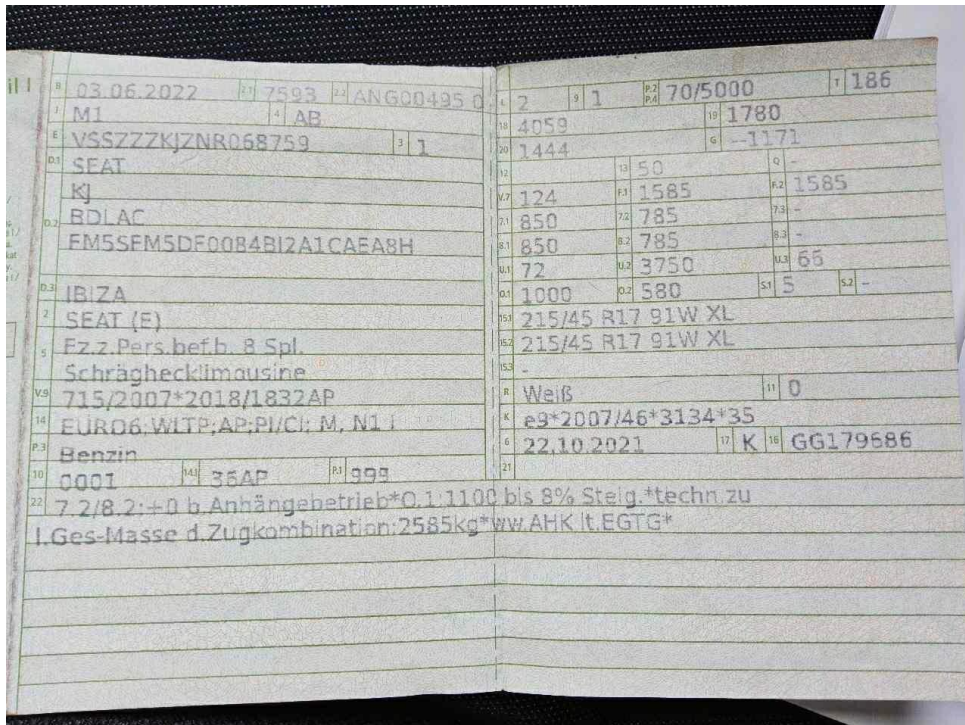 B 03.06.2022 2.1 7593 2.2 ANG00495 0
J M1 4 AB
E VSSZZZKJZNR068759 3 1
D.1 SEAT
KJ
D.2 BDLAC
FM5SFM5DF0084BI2A1CAEA8H
D.3 IBIZA
2 SEAT (E)
5 Fz.z.Pers.bef.b. 8 Spl.
Schräghecklimousine
V.9 715/2007*2018/1832AP
14 EURO6;WLTP;AP;PI/CI; M, N1 I
P.3 Benzin
10 0001 14.1 36AP P.1 999
L 2 9 1 P.2 P.4 70/5000 T 186
18 4059 19 1780
20 1444 G --1171
12 13 50 Q -
V.7 124 F.1 1585 F.2 1585
7.1 850 7.2 785 7.3 -
8.1 850 8.2 785 8.3 -
U.1 72 U.2 3750 U.3 66
O.1 1000 O.2 580 S.1 5 S.2 -
15.1 215/45 R17 91W XL
15.2 215/45 R17 91W XL
15.3 -
R Weiß 11 0
K e9*2007/46*3134*35
6 22.10.2021 17 K 16 GG179686
21
22 7.2/8.2:+0 b.Anhängebetrieb*O.1:1100 bis 8% Steig.*techn.zu
l.Ges-Masse d.Zugkombination:2585kg*ww.AHK lt.EGTG*